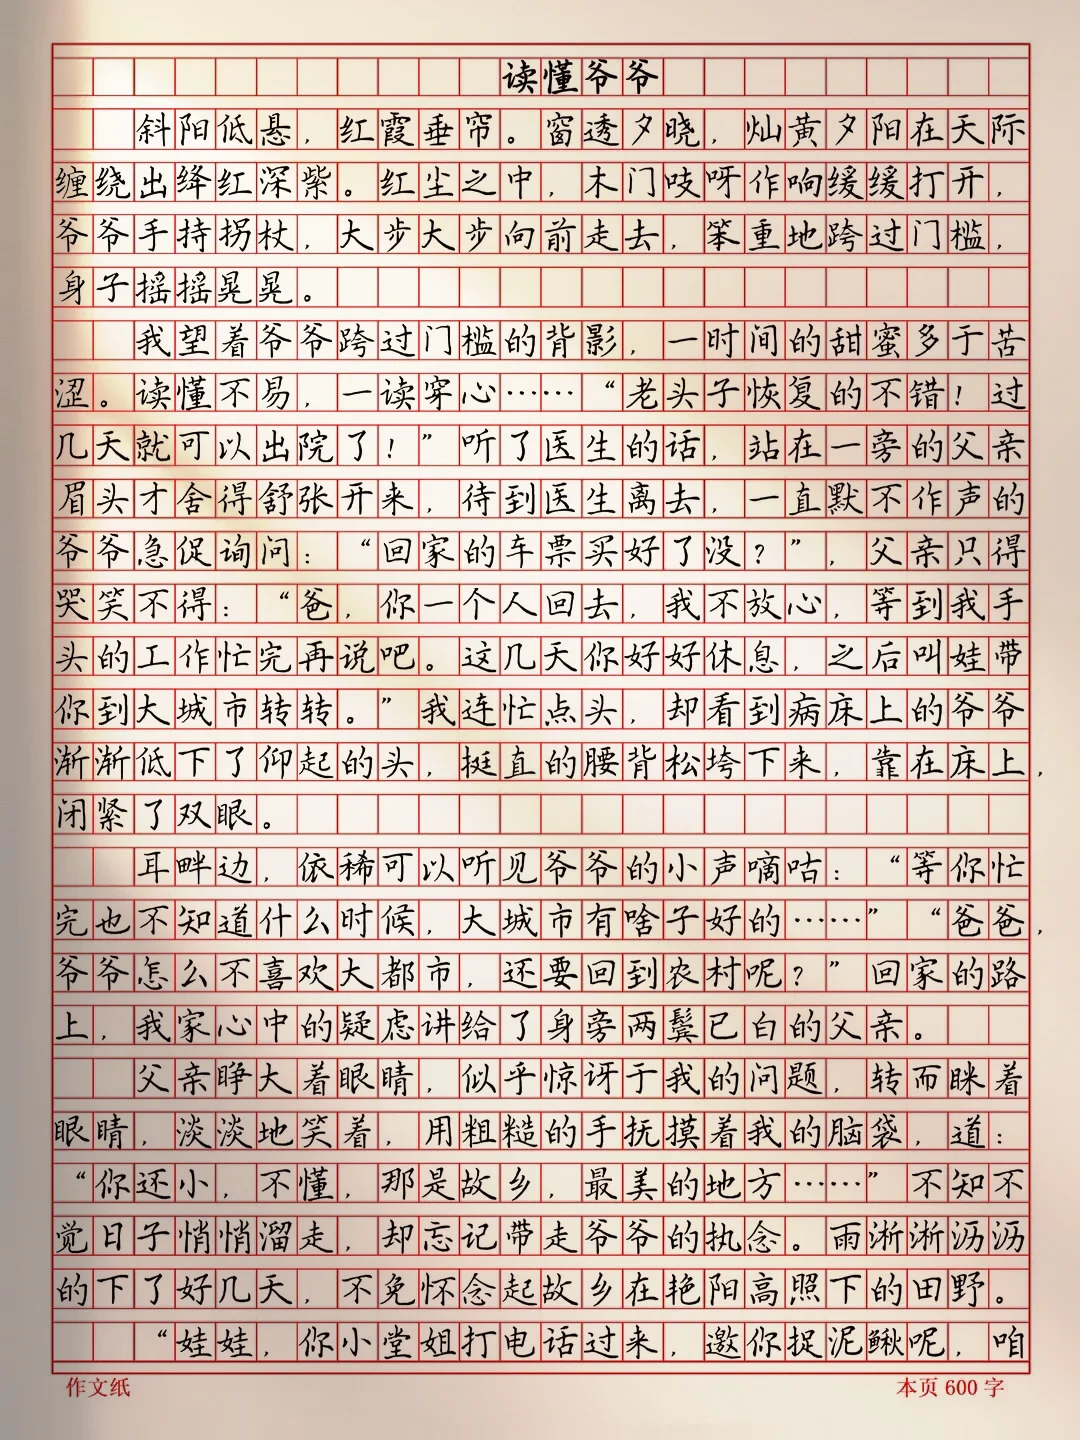 读懂爷爷
斜阳低悬，红霞垂帘。窗透夕晓，灿黄夕阳在天际
缠绕出绛红深紫。红尘之中，木门吱呀作响缓缓打开，
爷爷手持拐杖，大步大步向前走去，笨重地跨过门槛，
身子摇摇晃晃。
我望着爷爷跨过门槛的背影，一时间的甜蜜多于苦
涩。读懂不易，一读穿心……“老头子恢复的不错！过
几天就可以出院了！”听了医生的话，站在一旁的父亲
眉头才舍得舒张开来，待到医生离去，一直默不作声的
爷爷急促询问：“回家的车票买好了没？”，父亲只得
哭笑不得：“爸，你一个人回去，我不放心，等到我手
头的工作忙完再说吧。这几天你好好休息，之后叫娃带
你到大城市转转。”我连忙点头，却看到病床上的爷爷
渐渐低下了仰起的头，挺直的腰背松垮下来，靠在床上，
闭紧了双眼。
耳畔边，依稀可以听见爷爷的小声嘀咕：“等你忙
完也不知道什么时候，大城市有啥子好的……”“爸爸，
爷爷怎么不喜欢大都市，还要回到农村呢？”回家的路
上，我家心中的疑虑讲给了身旁两鬓已白的父亲。
父亲睁大着眼睛，似乎惊讶于我的问题，转而眯着
眼睛，淡淡地笑着，用粗糙的手抚摸着我的脑袋，道：
“你还小，不懂，那是故乡，最美的地方……”不知不
觉日子悄悄溜走，却忘记带走爷爷的执念。雨淅淅沥沥
的下了好几天，不免怀念起故乡在艳阳高照下的田野。
“娃娃，你小堂姐打电话过来，邀你捉泥鳅呢，咱
作文纸
本页 600 字